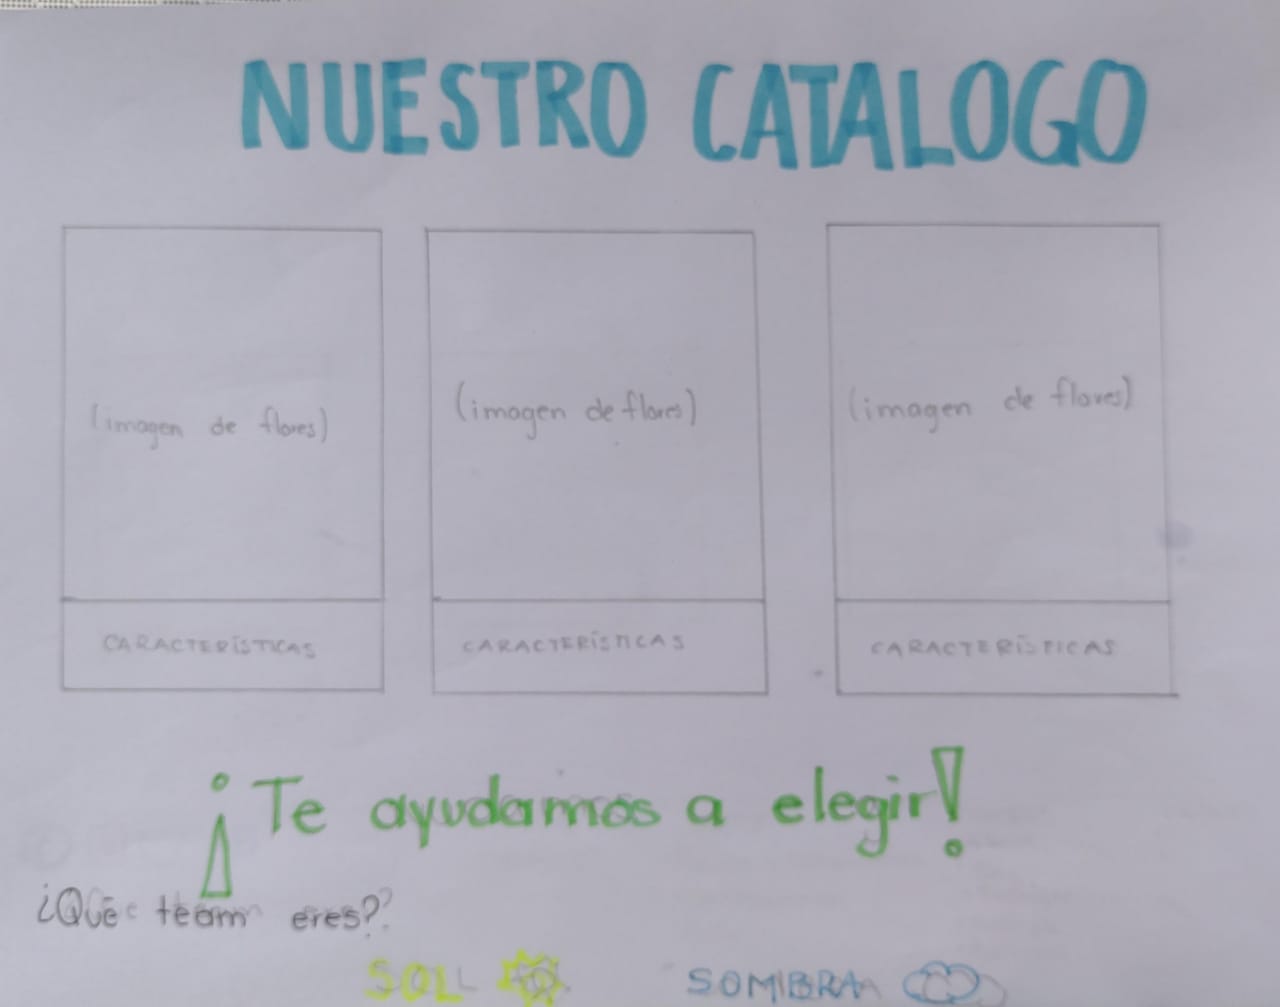 NUESTRO CATALOGO
(imagen de flores) (imagen de flores) (imagen de flores)
CARACTERÍSTICAS CARACTERÍSTICAS CARACTERÍSTICAS
¡Te ayudamos a elegir!
¿Qué team eres?
SOL SOMBRA